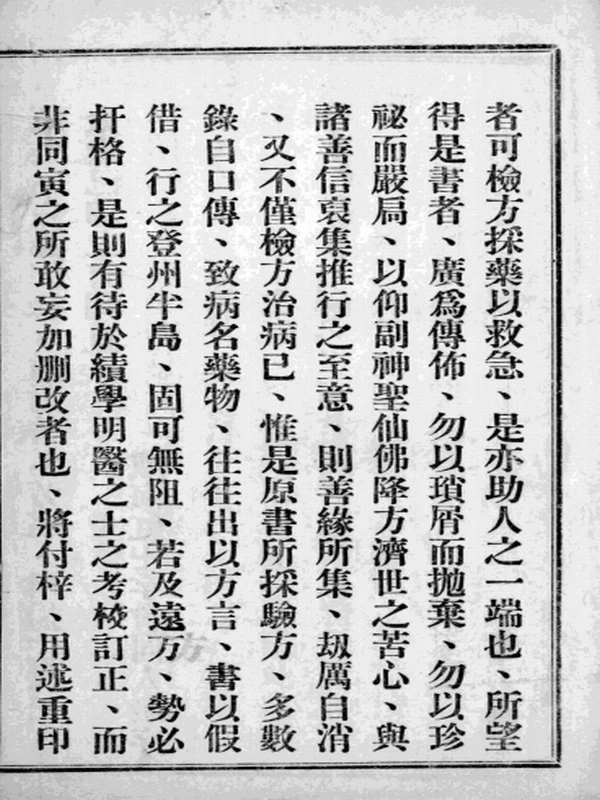 者可檢方採藥以救急、是亦助人之一端也、所望
得是書者、廣爲傳佈、勿以瑣屑而拋棄、勿以珍
祕而嚴扃、以仰副神聖仙佛降方濟世之苦心、與
諸善信裒集推行之至意、則善緣所集、刼厲自消
、又不僅檢方治病已、惟是原書所採驗方、多數
錄自口傳、致病名藥物、往往出以方言、書以假
借、行之登州半島、固可無阻、若及遠方、勢必
扞格、是則有待於績學明醫之士之考校訂正、而
非同寅之所敢妄加刪改者也、將付梓、用述重印